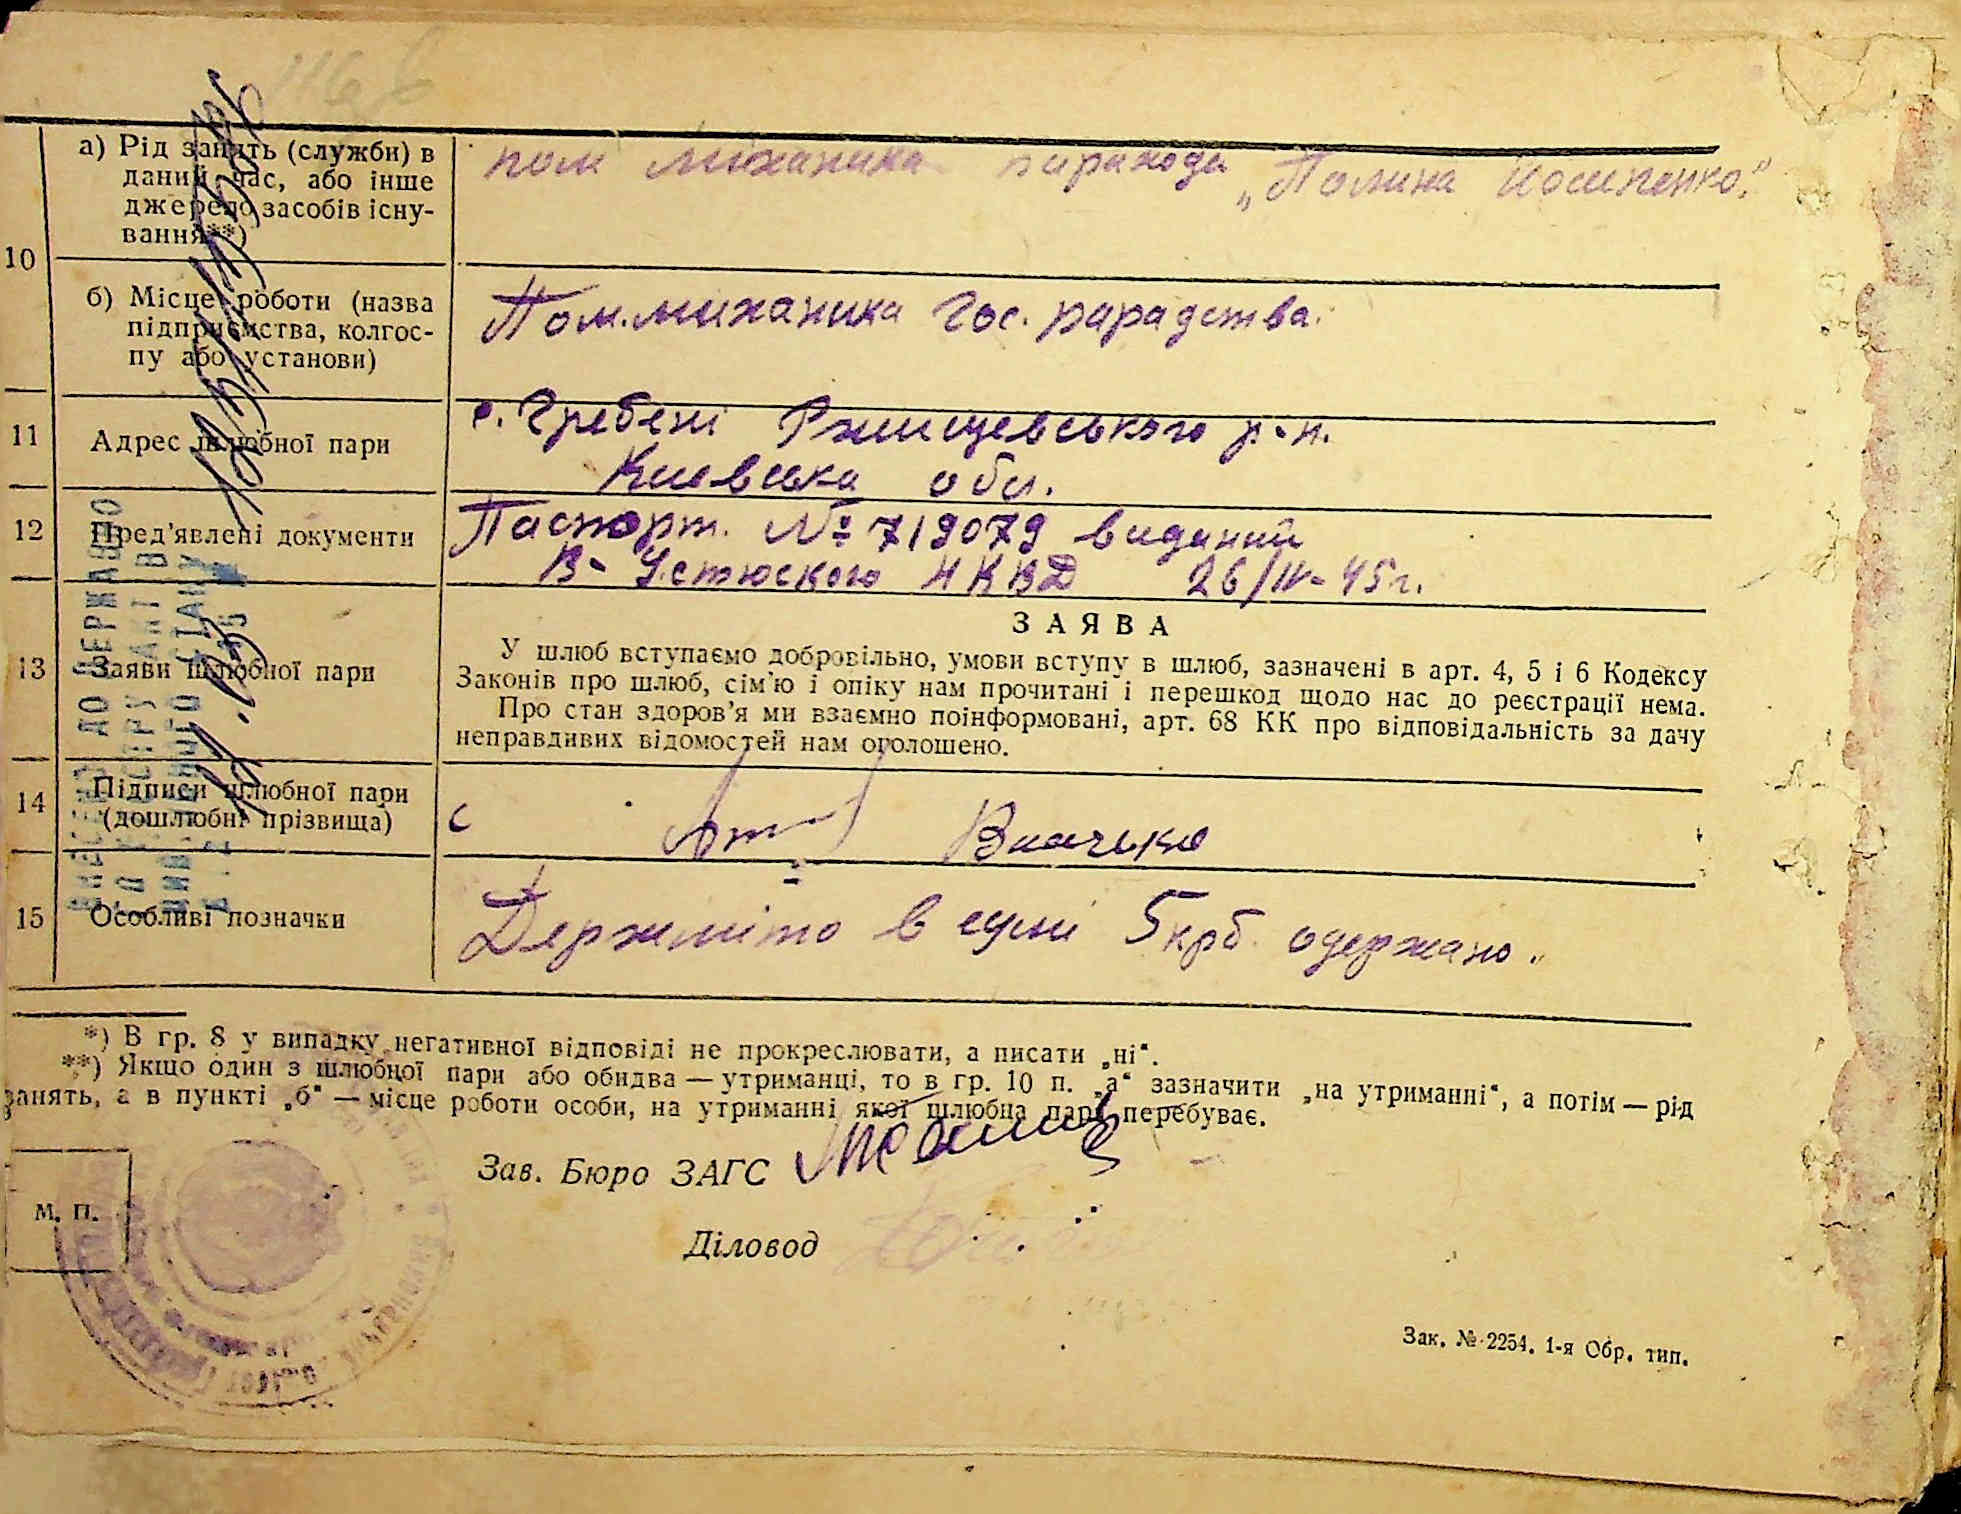 а) Рід занять (служби) в
даний час, або інше
джерело засобів існу-
вання**)
пом миханика парахода „Полина Носипенко."
10
б) Місце роботи (назва
підприємства, колгос-
пу або установи)
Пом.миханика Гос. парадства.
11
Адрес шлюбної пари
с. Гребені Ржищевського р-н.
Киевська обл.
12
Пред'явлені документи
Паспорт. № 719079 виданий
В- Устюского НКВД 26/IV-45г.
13
Заяви шлюбної пари
ЗАЯВА
У шлюб вступаємо добровільно, умови вступу в шлюб, зазначені в арт. 4, 5 і 6 Кодексу
Законів про шлюб, сім'ю і опіку нам прочитані і перешкод щодо нас до реєстрації нема.
Про стан здоров'я ми взаємно поінформовані, арт. 68 КК про відповідальність за дачу
неправдивих відомостей нам оголошено.
14
Підписи шлюбної пари
(дошлюбні прізвища)
15
Особливі позначки
Держмито в сумі 5 крб. одержано.
ВНЕСЕНО ДО ДЕРЖАВНОГО РЕЄСТРУ АКТІВ ЦИВІЛЬНОГО СТАНУ
*) В гр. 8 у випадку негативної відповіді не прокреслювати, а писати „ні".
**) Якщо один з шлюбної пари або обидва — утриманці, то в гр. 10 п. „а" зазначити „на утриманні", а потім — рід
занять, а в пункті „б" — місце роботи особи, на утриманні якої шлюбна пара перебуває.
Зав. Бюро ЗАГС
М. П.
Діловод
Зак. № 2254. 1-я Обр. тип.